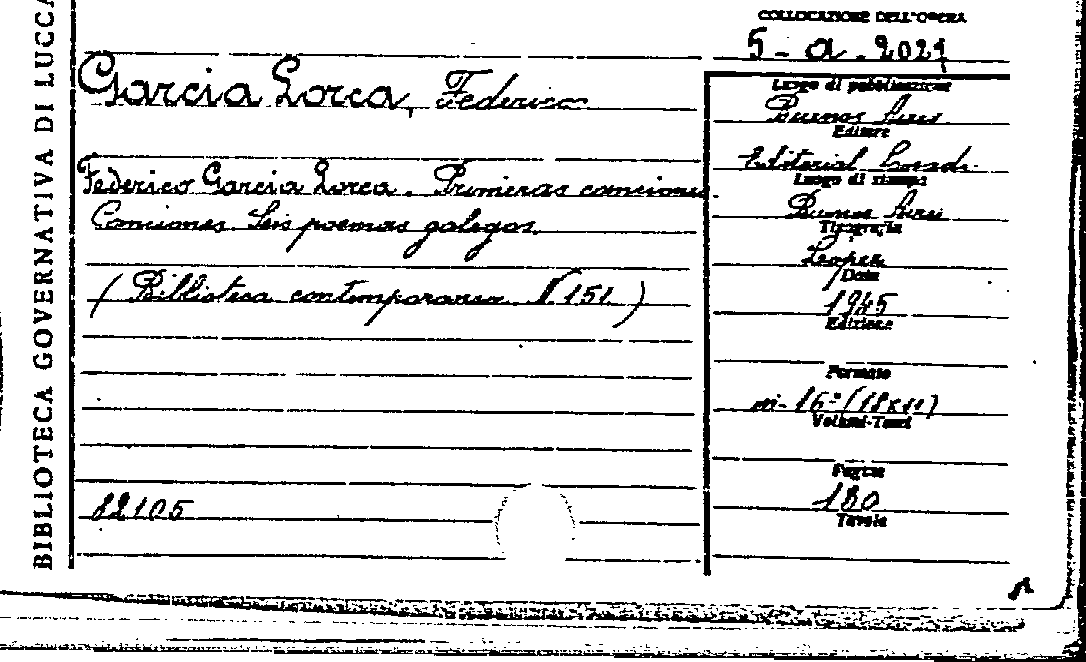 BIBLIOTECA GOVERNATIVA DI LUCCA
COLLOCAZIONE DELL'OPERA
5 - a. 2021
Garcia Lorca, Federico
Federico Garcia Lorca. Primeras canciones
Canciones. Seis poemas galegos.
( Biblioteca contemporanea N 151 )
82105
Luogo di pubblicazione
Buenos Aires
Editore
Editorial Losada
Luogo di stampa
Buenos Aires
Tipografia
Lopez
Data
1945
Edizione
Formato
in-16° (18x11)
Volumi-Tomi
Pagine
180
Tavole